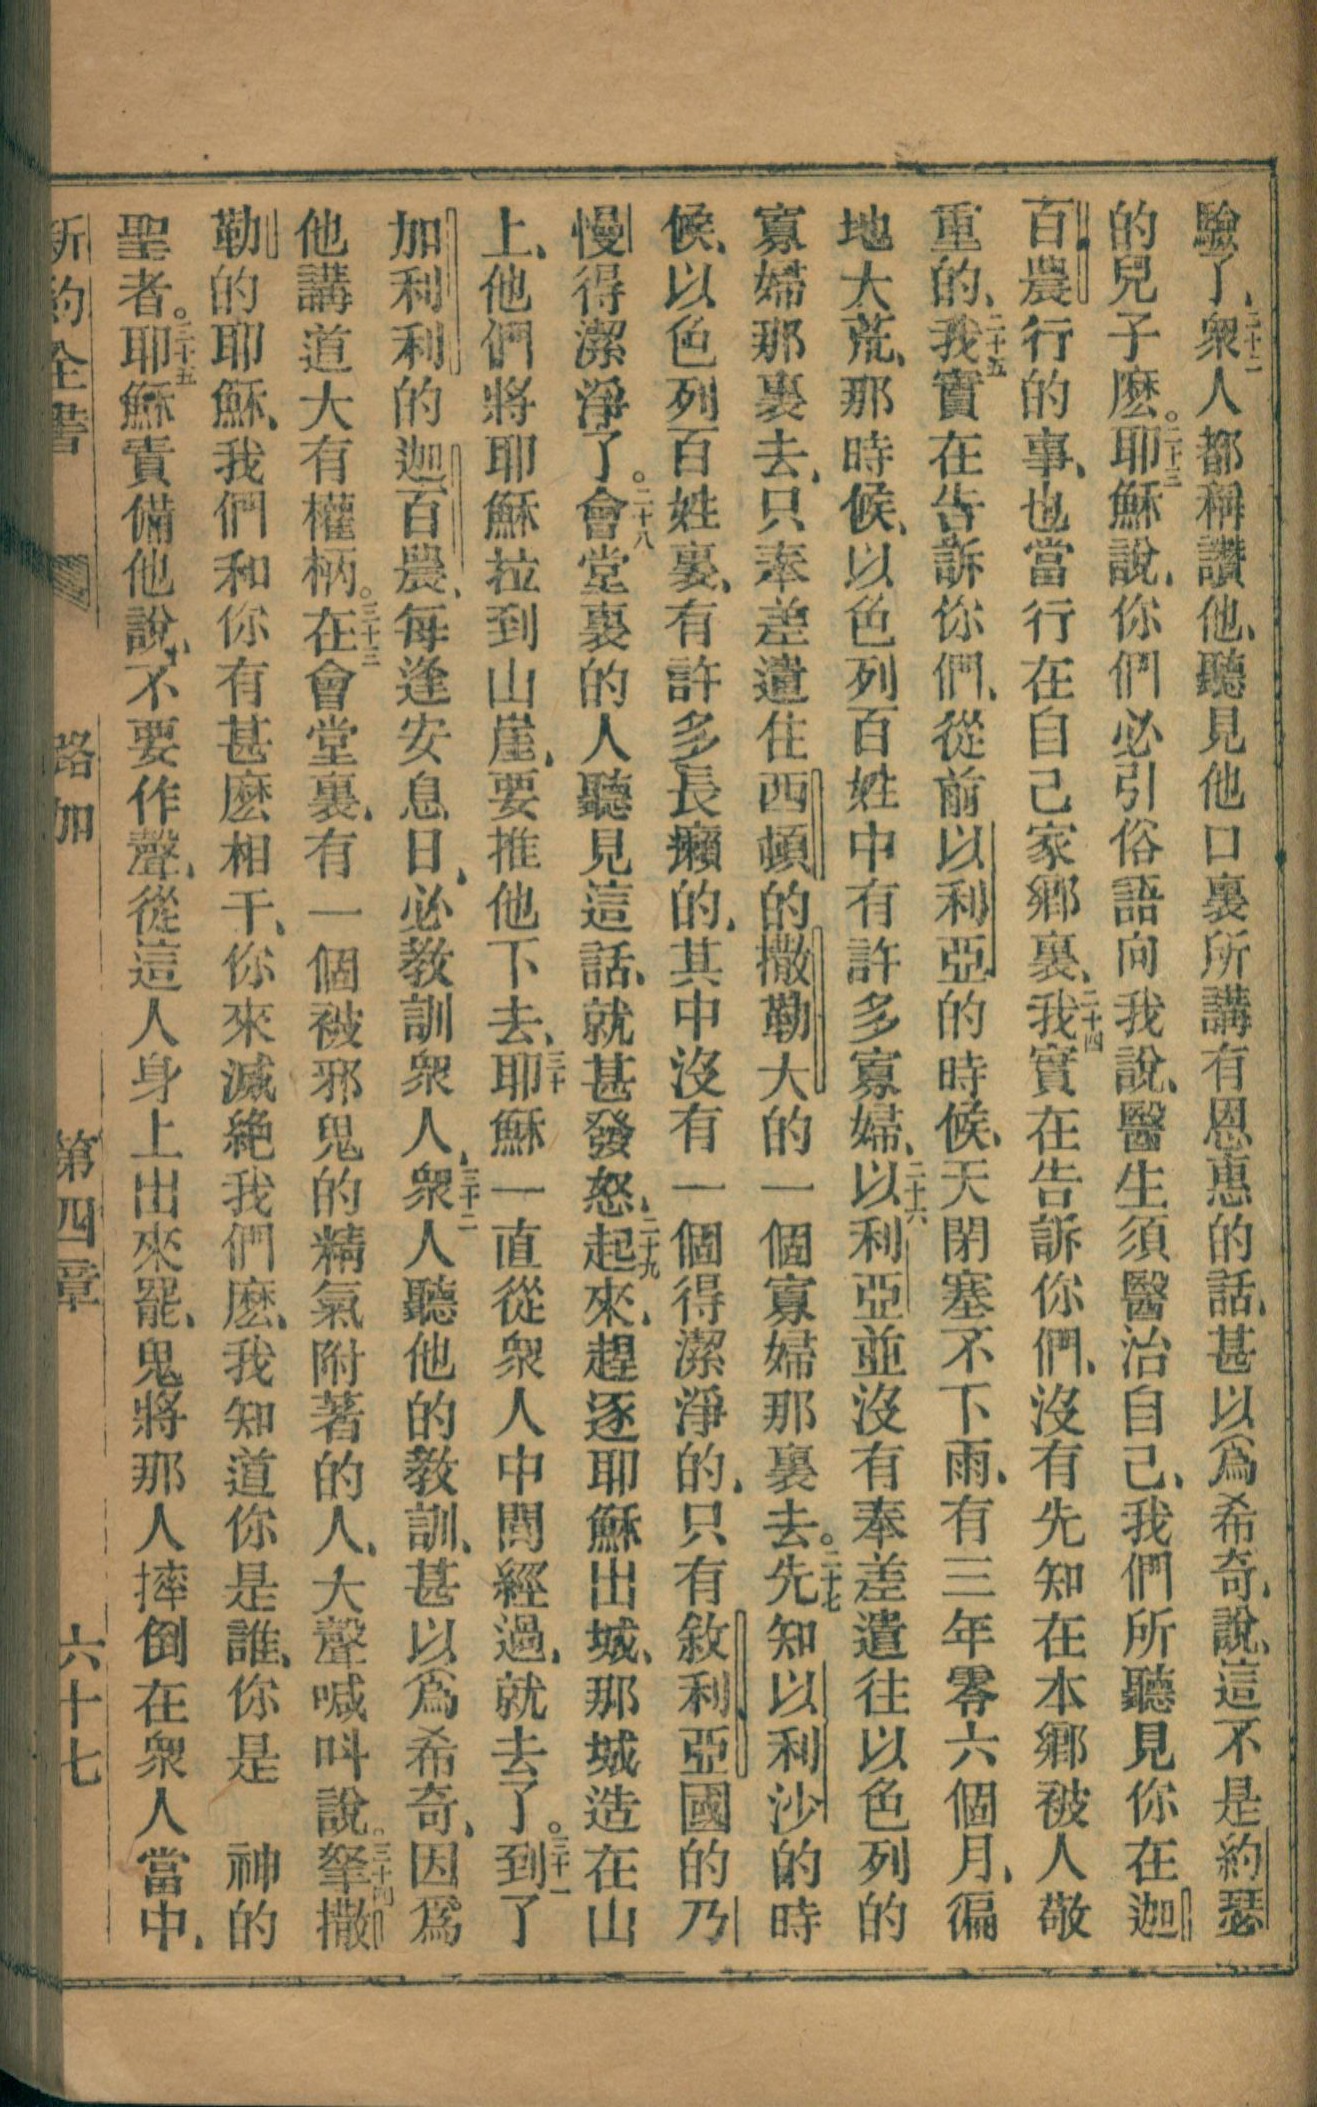 驗了、二十二衆人都稱讚他、聽見他口裏所講有恩惠的話、甚以爲希奇、說、這不是約瑟
的兒子麽。二十三耶穌說、你們必引俗語向我說、醫生須醫治自己、我們所聽見你在迦
百農行的事、也當行在自己家鄉裏、二十四我實在告訴你們、沒有先知在本鄉被人敬
重的、二十五我實在告訴你們、從前以利亞的時候、天閉塞不下雨、有三年零六個月、徧
地大荒、那時候、以色列百姓中有許多寡婦、二十六以利亞並沒有奉差遣往以色列的
寡婦那裏去、只奉差遣住西頓的撒勒大的一個寡婦那裏去。二十七先知以利沙的時
候、以色列百姓裏、有許多長癩的、其中沒有一個得潔淨的、只有敘利亞國的乃
慢得潔淨了。二十八會堂裏的人聽見這話、就甚發怒、二十九起來、趕逐耶穌出城、那城造在山
上、他們將耶穌拉到山崖、要推他下去、三十耶穌一直從衆人中間經過、就去了。三十一到了
加利利的迦百農、每逢安息日、必教訓衆人、三十二衆人聽他的教訓、甚以爲希奇、因爲
他講道大有權柄。三十三在會堂裏、有一個被邪鬼的精氣附著的人、大聲喊叫說。三十四拏撒
勒的耶穌、我們和你有甚麽相干、你來滅絶我們麽、我知道你是誰、你是　神的
聖者。三十五耶穌責備他說、不要作聲、從這人身上出來罷、鬼將那人摔倒在衆人當中、
新約全書　路加　第四章　六十七